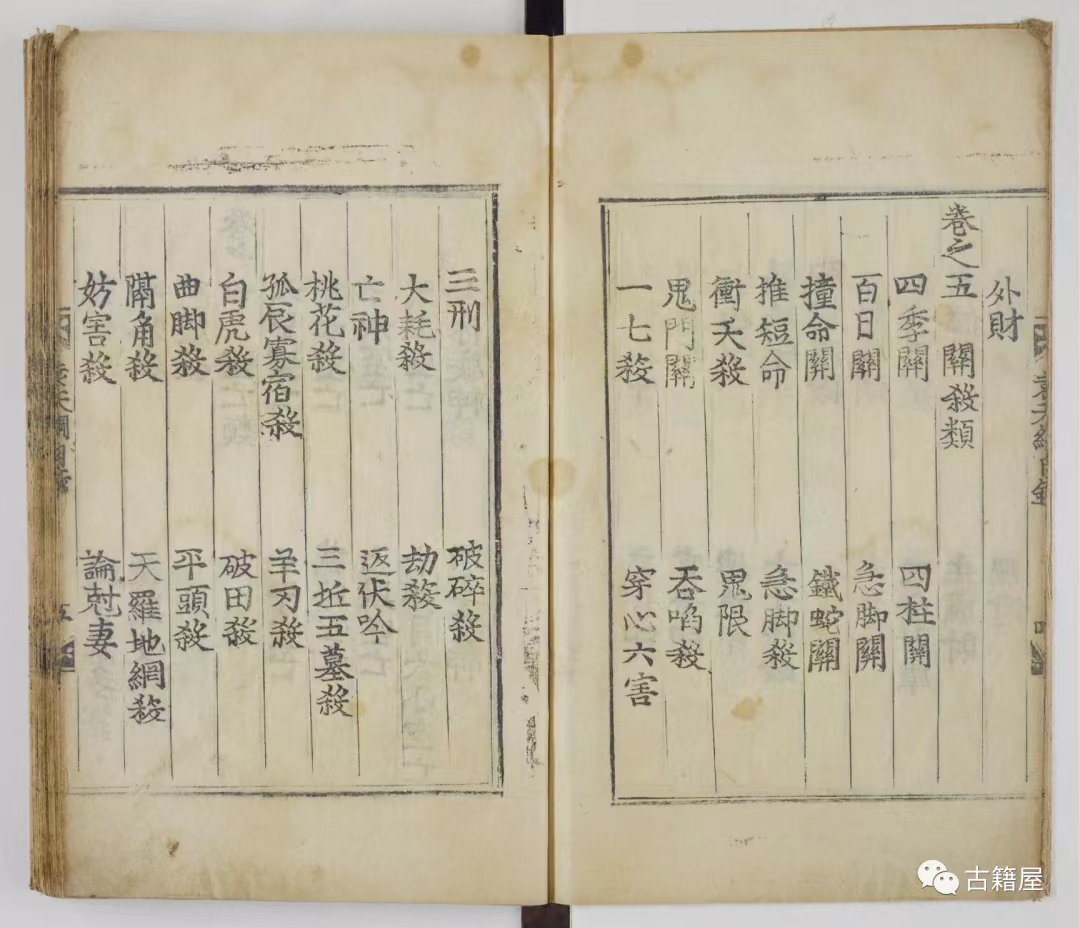 外財
卷之五 關殺類
四季關 四柱關
百日關 急脚關
撞命關 鐵蛇關
推短命 急脚殺
衝天殺 鬼限
鬼門關 吞啗殺
一七殺 穿心六害
三刑 破碎殺
大耗殺 劫殺
亡神 返伏吟
桃花殺 三坵五墓殺
孤辰寡宿殺 羊刃殺
白虎殺 破田殺
曲脚殺 平頭殺
隔角殺 天羅地網殺
妨害殺 論尅妻
五
古籍屋